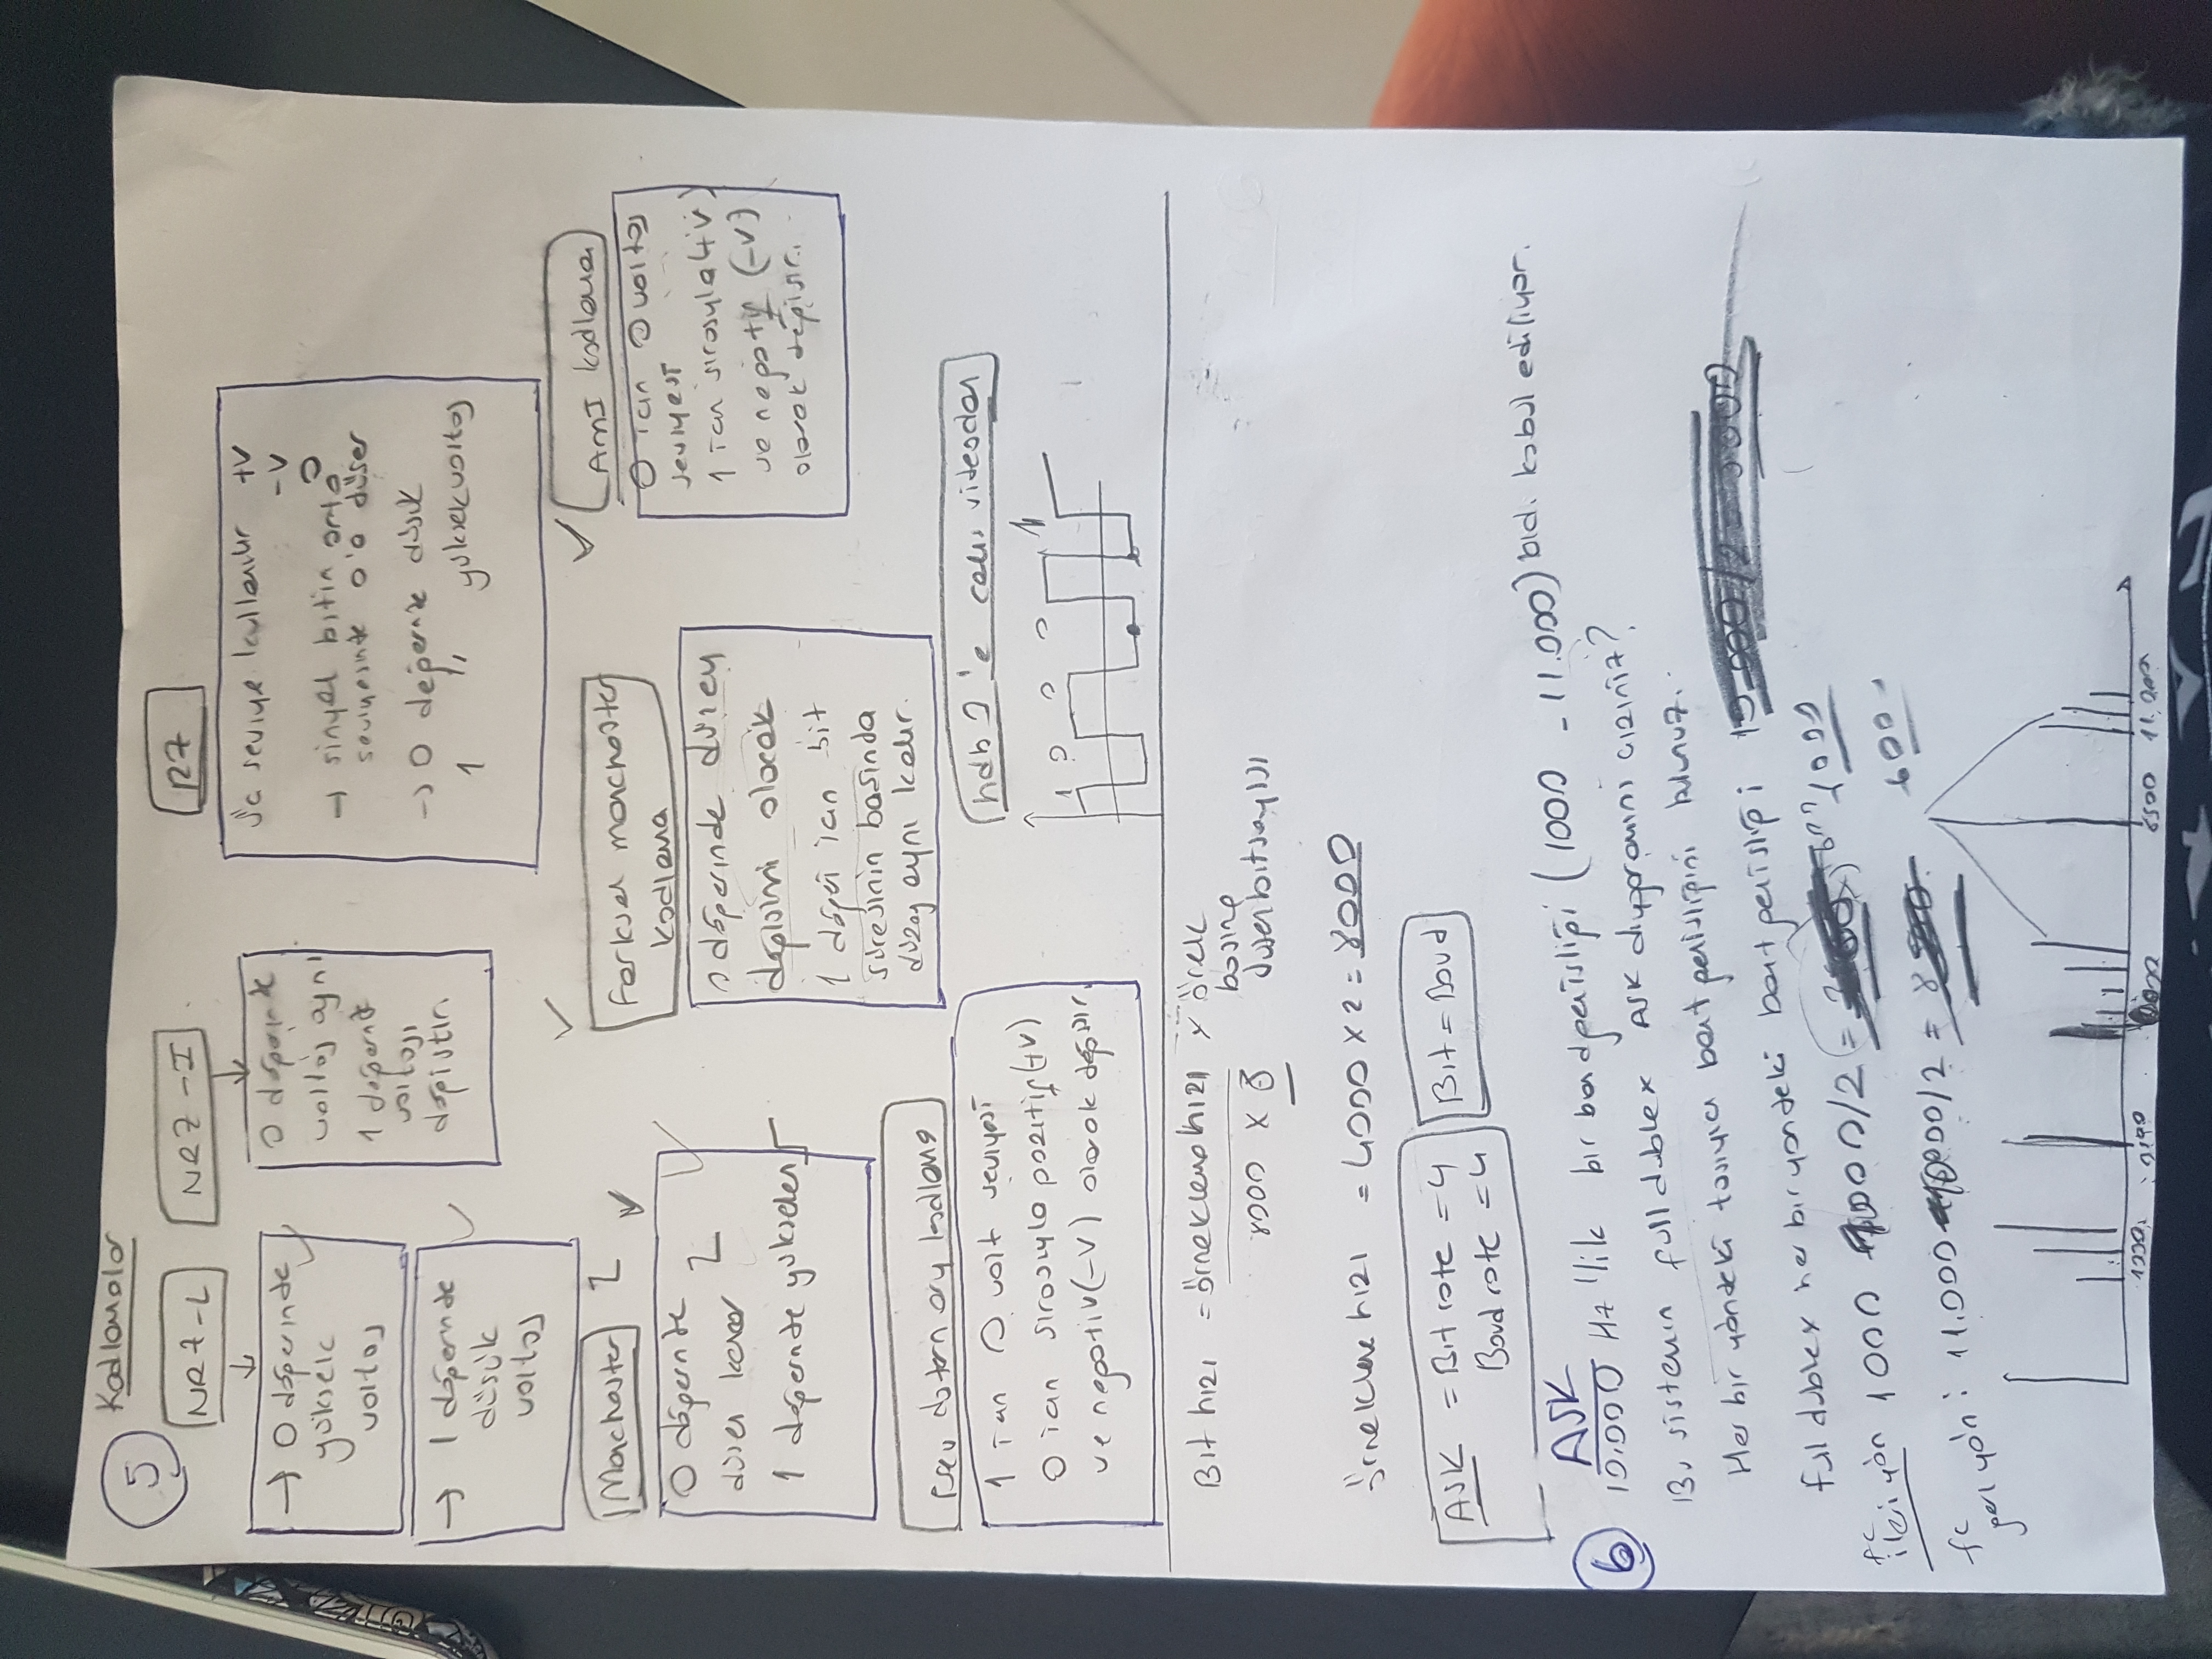 5
Kodlamalar
NRZ-L
→ 0 değerinde
yüksek
voltaj
→ 1 değerinde
düşük
voltaj
NRZ-I
0 değerinde
voltaj aynı
1 değerinde
voltajı
değiştir.
RZ
Üç seviye kullanılır +V
-V
0
→ sinyal bitin orta
seviyesinde 0'a düşer
→ 0 değerinde düşük
1 " yüksek voltaj
Manchester
0 değerinde
düşen kenar
1 değerinde yükselen
Farksal manchester
kodlama
0 değerinde düzey
değişimi olacak
1 değeri için bit
süresinin başında
düzey aynı kalır.
AMI kodlama
0 için 0 voltaj
seviyesi
1 için sırasıyla (+V)
ve negatif (-V)
olarak değişir.
Pseudoternary kodlama
1 için 0 volt seviyesi
0 için sırasıyla pozitif (+V)
ve negativ (-V) olarak değişir.
hdb3'e çalış videodan
1 0 0 0 1
Bit hızı = örnekleme hızı x örnek
başına
düşen bit sayısı
8000 x 8
örnekleme hızı = 4000 x 2 = 8000
ASK = Bit rate = 4
Baud rate = 4
Bit = Baud
6
ASK
10.000 Hz'lik bir bandgenişliği (1000 - 11.000) bıdı kabul ediliyor.
Bu sistemin full dublex ASK diyagramını çiziniz?
Her bir yöndeki taşıyıcı bant genişliğini bulunuz.
full dublex her bir yöndeki bant genişliği
fc
ileri yön 1000
000/2 =
1000
fc
geri yön: 11.000
000/2 =
600
1000
8500
11.000